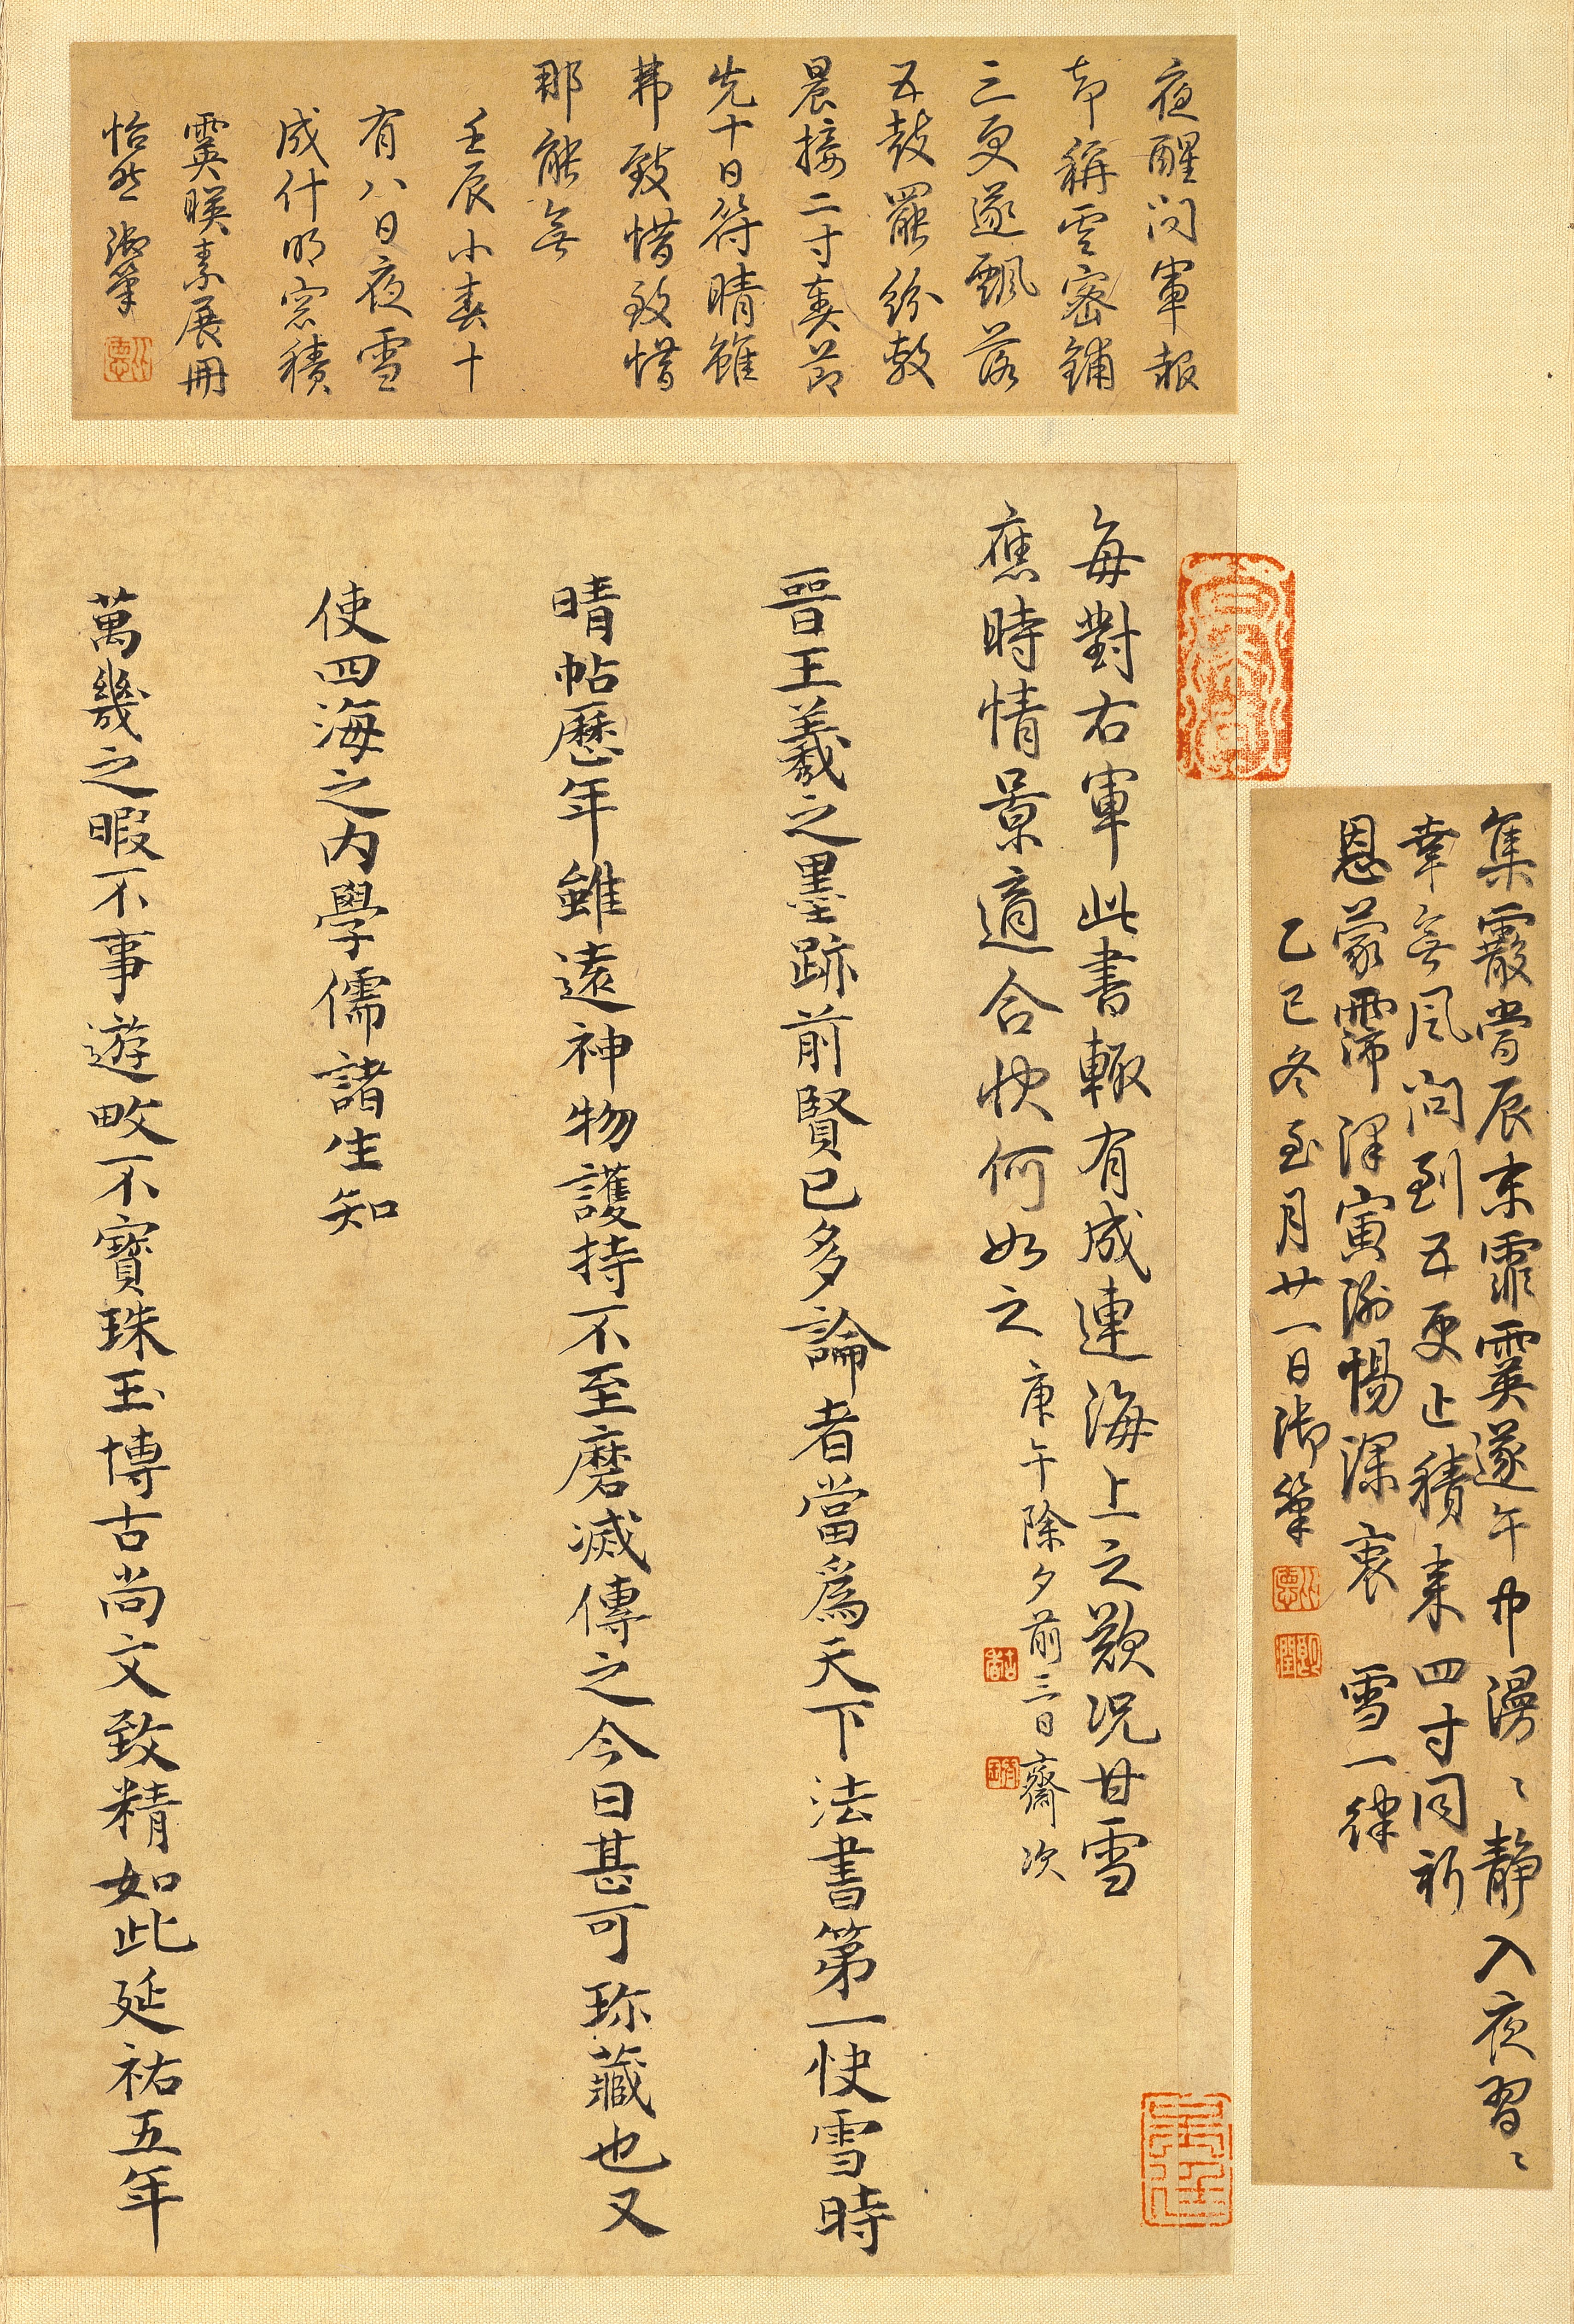 集霰嘗辰末霏霙遂午中漫〻靜入夜習〻
幸無風問到五更止積來四寸同祈
恩蒙霈澤寅謝惕深衷 雪一律
乙巳冬至月廿一日御筆
夜醒問軍報
却稱雲密鋪
三更遂飄落
五鼓罷紛敷
晨接二寸奏節
先十日符晴雖
弗致惜致惜
那能無
壬辰小春十
有八日夜雪
成什明窓積
霙暎素展冊
怡然御筆
每對右軍此書輙有成連海上之歎况甘雪
應時情景適合快何如之庚午除夕前三日齋次
晉王羲之墨跡前賢已多論者當爲天下法書第一快雪時
晴帖歷年雖遠神物護持不至磨滅傳之今日甚可珎藏也又
使四海之內學儒諸生知
萬幾之暇不事遊畋不寳珠玉博古尚文致精如此延祐五年